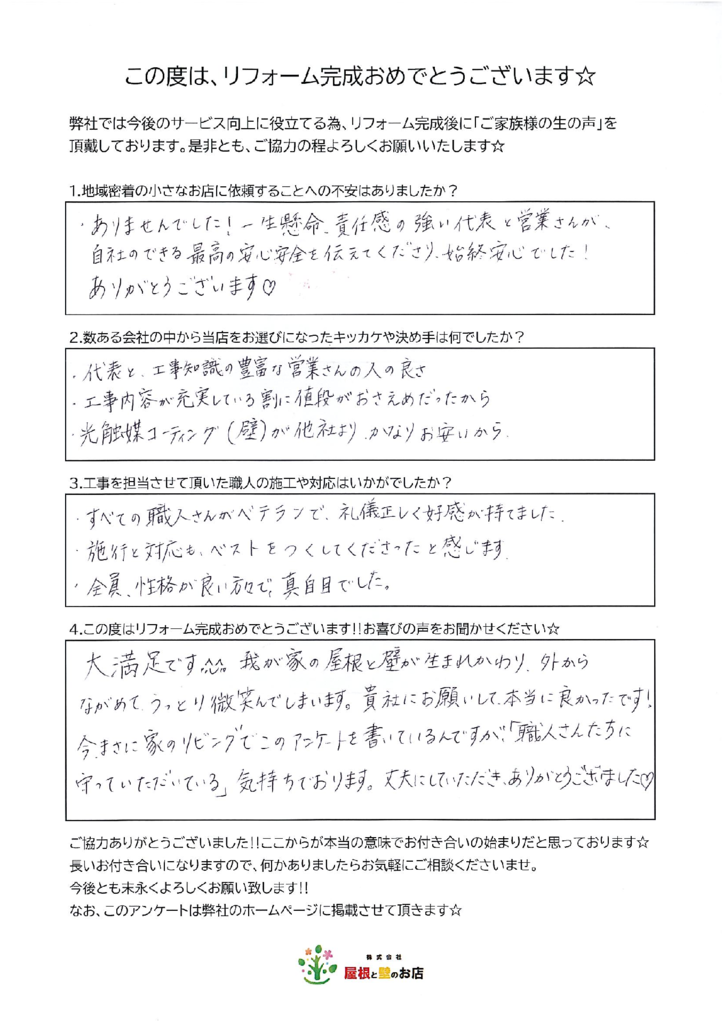 この度は、リフォーム完成おめでとうございます☆
弊社では今後のサービス向上に役立てる為、リフォーム完成後に「ご家族様の生の声」を
頂戴しております。是非とも、ご協力の程よろしくお願いいたします☆
1.地域密着の小さなお店に依頼することへの不安はありましたか?
・ありませんでした!一生懸命、責任感の強い代表と営業さんが、
自社のできる最高の安心安全を伝えてくださり、始終安心でした!
ありがとうございます♡
2.数ある会社の中から当店をお選びになったキッカケや決め手は何でしたか?
・代表と、工事知識の豊富な営業さんの人の良さ
・工事内容が充実している割に値段がおさえめだったから
・光触媒コーティング(壁)が他社より、かなりお安いから.
3.工事を担当させて頂いた職人の施工や対応はいかがでしたか?
・すべての職人さんがベテランで、礼儀正しく好感が持てました.
・施行と対応も、ベストをつくしてくださったと感じます.
・全員、性格が良い方々で、真面目でした。
4.この度はリフォーム完成おめでとうございます!!お喜びの声をお聞かせください☆
大満足です^^ 我が家の屋根と壁が生まれかわり、外から
ながめて、うっとり微笑んでしまいます。貴社にお願いして、本当に良かったです!
今、まさに家のリビングでこのアンケートを書いているんですが、「職人さんたちに
守っていただいている」気持ちでおります。丈夫にしていただき、ありがとうございました♡
ご協力ありがとうございました!!ここからが本当の意味でお付き合いの始まりだと思っております☆
長いお付き合いになりますので、何かありましたらお気軽にご相談くださいませ。
今後とも末永くよろしくお願い致します!!
なお、このアンケートは弊社のホームページに掲載させて頂きます☆
株式会社
屋根と壁のお店